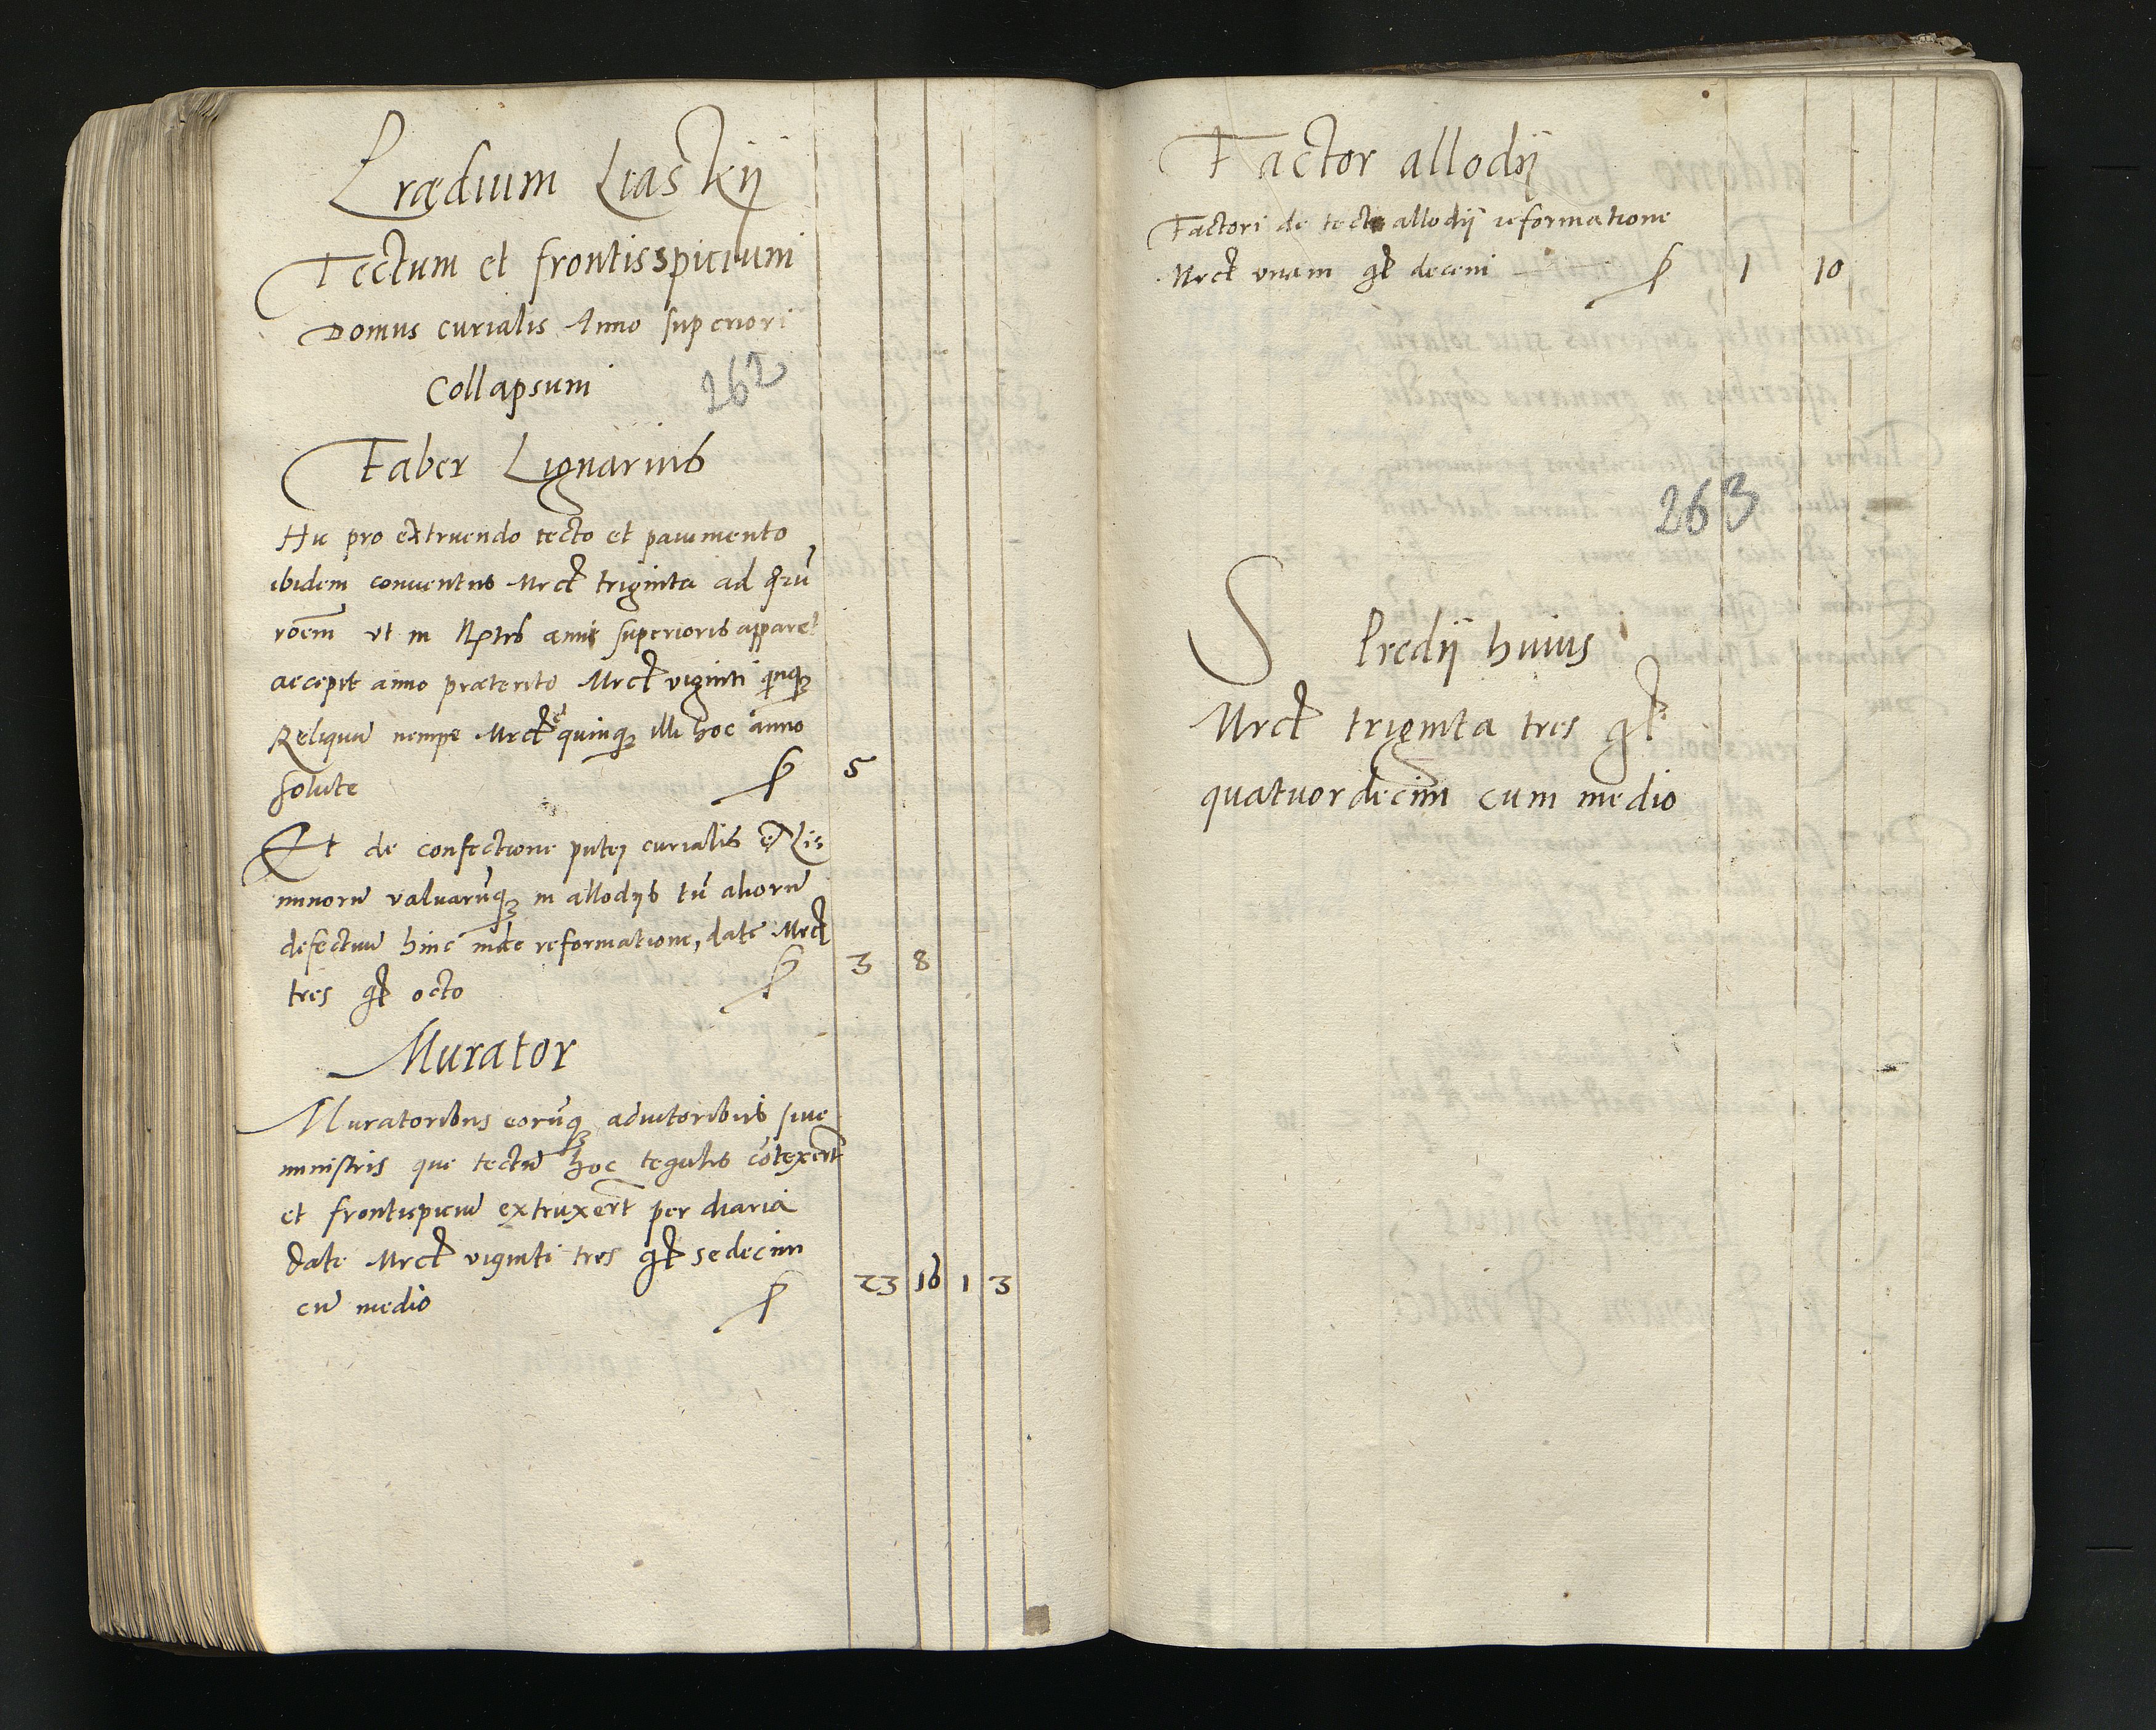 Prædium Liaskÿ
Tectum et frontisspicium
Domus curialis Anno superiori
Collapsum
262
Faber Lignarius
Hic pro extruendo tecto et pauimento
ibidem conuentus Mrct triginta ad
roem̄ vt in Rgtrs anni superioris apparet
accepit anno præterito Mrct viginti qnq3
Reliquū nempe Mrct quinq3 illi hoc anno
solute
f 5
Et de confectione putej curialis et Lis
minorū valuarūq3 in allodÿs tū aliorū
defectuū hinc inde reformatione, date Mrct
tres gt octo
f 3 8
Murator
Muratoribus eorūq3 adiutoribus siue
ministris que tectū hoc tegulis cōtexert
et frontispiciū extruxert per diaria
date Mrct viginti tres gt sedecim
cū medio
f 23 16 1 3
Factor allodÿ
Factori de tecto allodÿ reformatione
Mrct vnam gt decem f 1 10
263
S Predÿ huius
Mrct triginta tres gt
quatuordecim cum medio